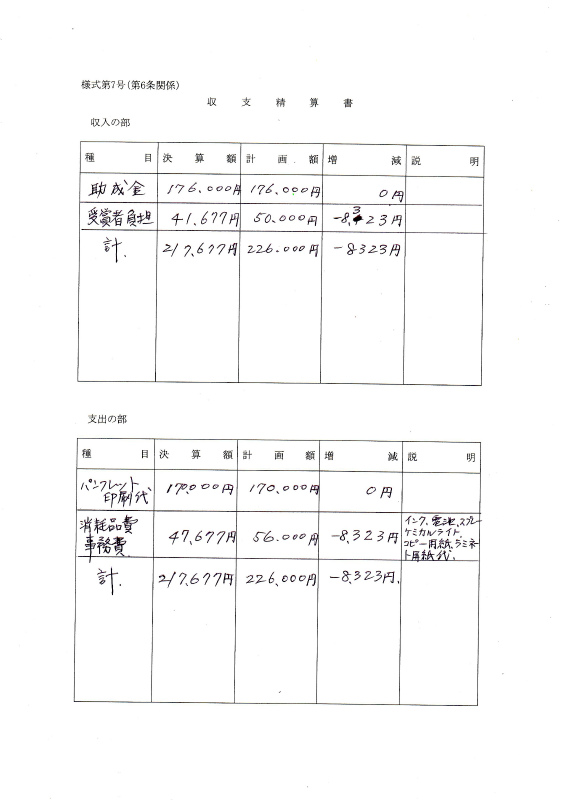 様式第7号(第6条関係)
収支精算書
収入の部
種目 決算額 計画額 増減 説明
助成金 176,000円 176,000円 0円
受賞者負担 41,677円 50,000円 -8,323円
計. 217,677円 226,000円 -8323円
支出の部
種目 決算額 計画額 増減 説明
パンフレット
印刷代 170,000円 170,000円 0円
消耗品費
事務費 47,677円 56,000円 -8,323円
インク、電池、スプレー
ケミカルライト、
コピー用紙、ラミネー
ト用紙代.
計. 217,677円 226,000円 -8,323円.